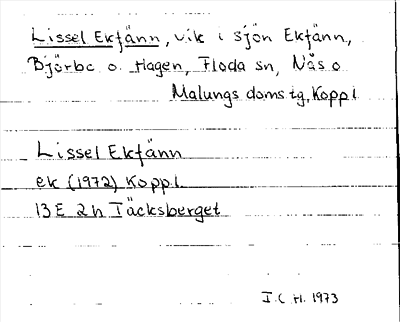 Lissel Ekfänn, vik i sjön Ekfänn,
Björbo o. Hagen, Floda sn, Nås o
Malungs domstg, Koppl
Lissel Ekfänn
ek (1972) Koppl.
13E 2h Täcksberget
I.C.H. 1973